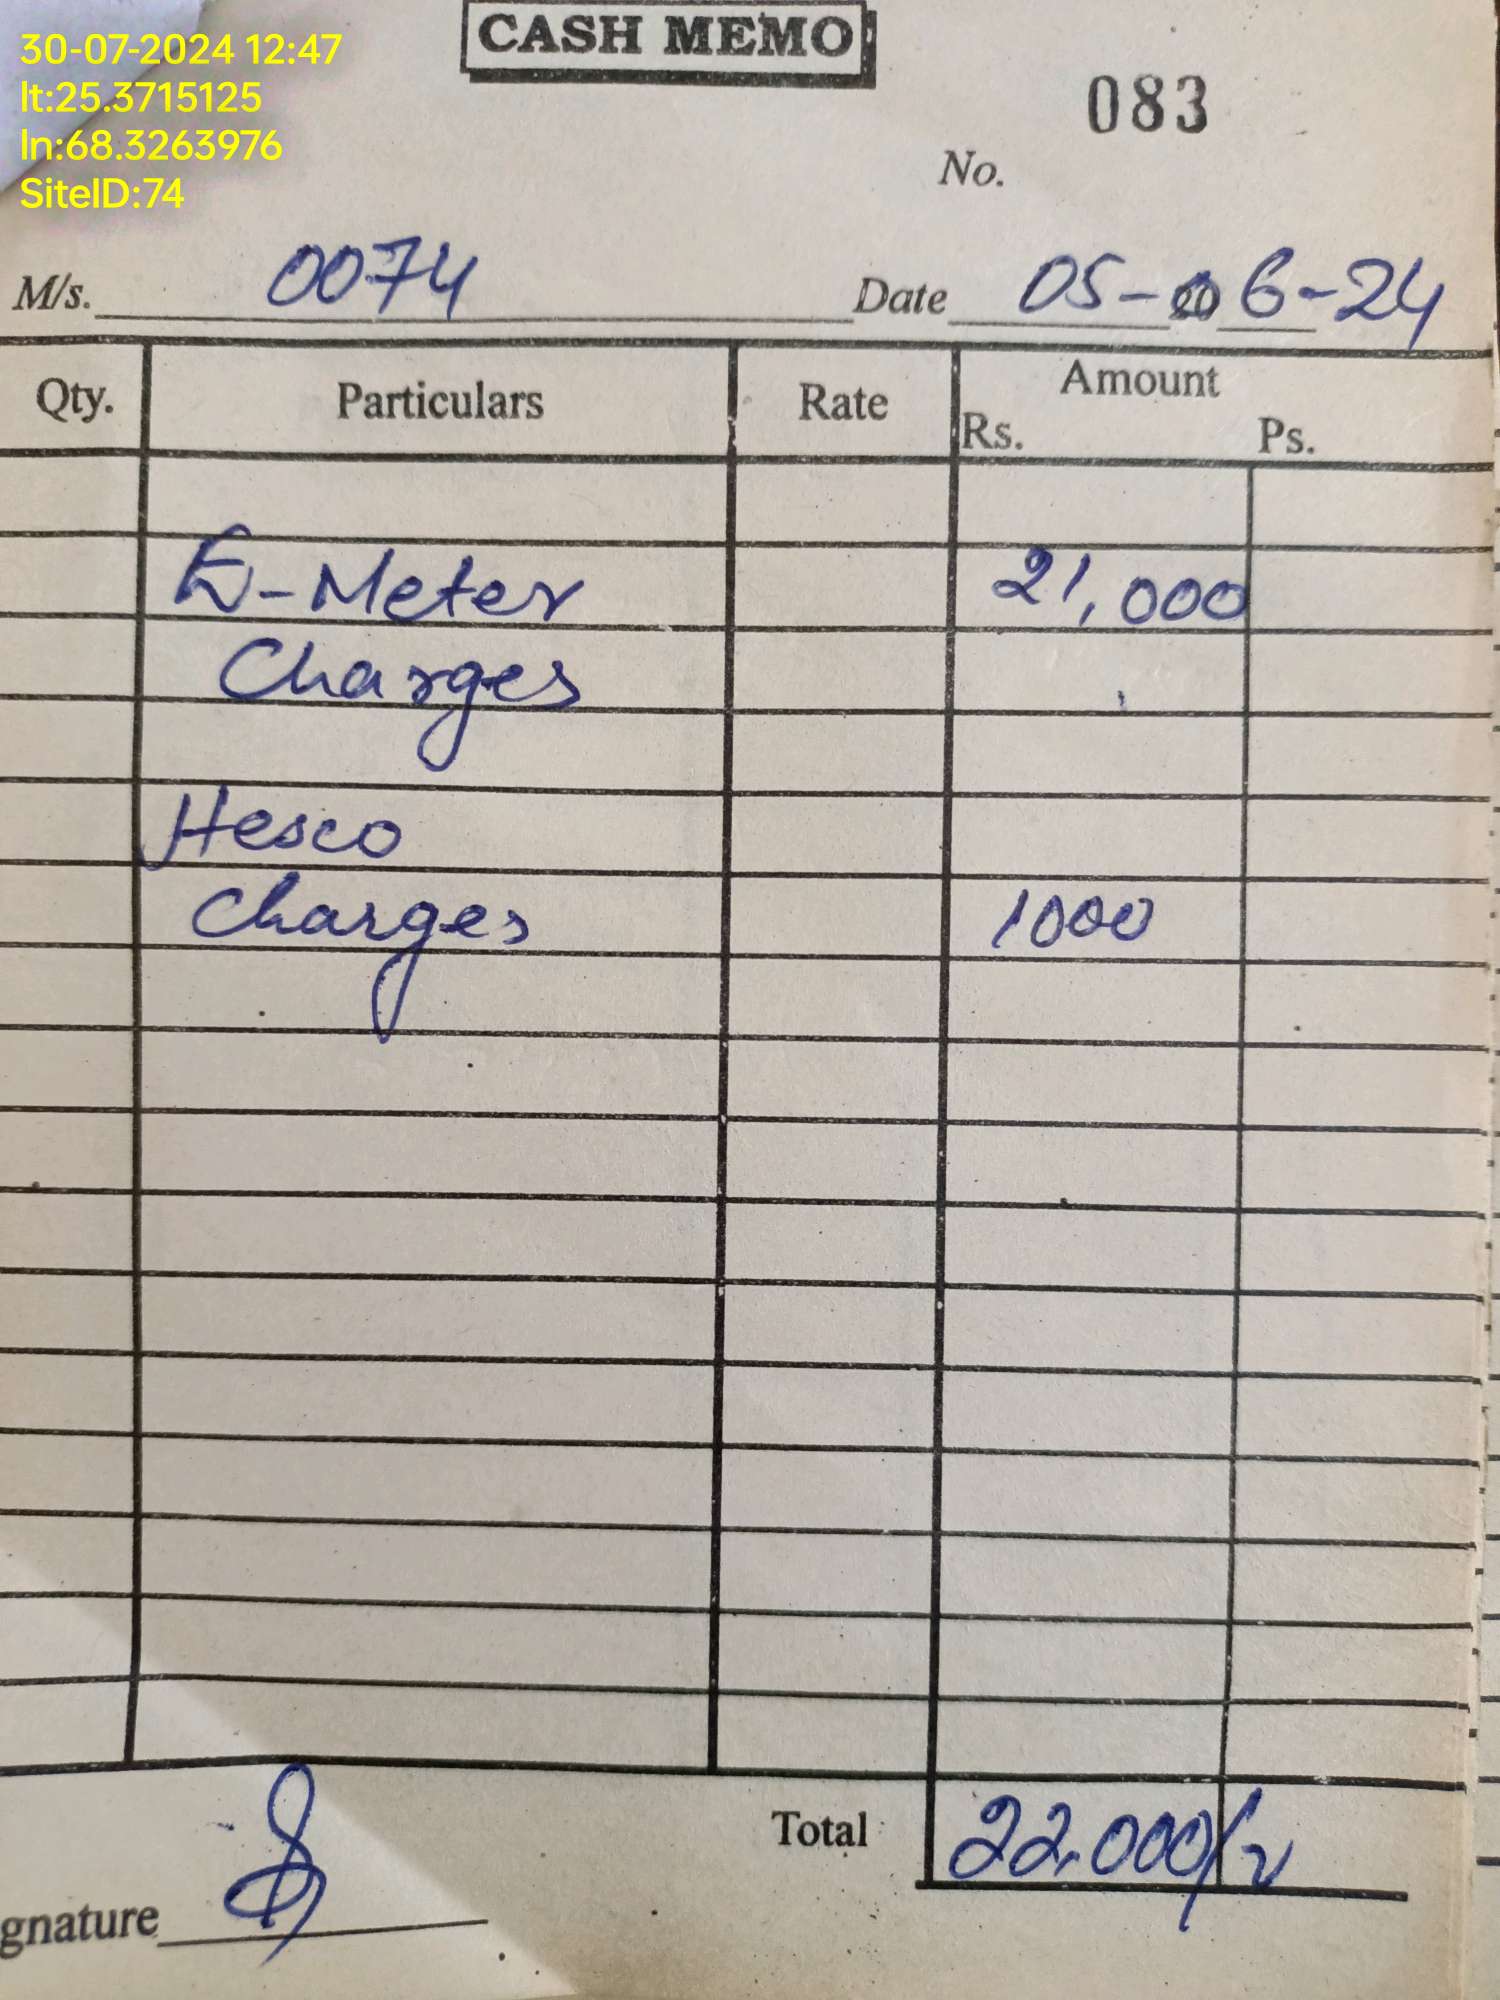 30-07-2024 12:47
lt:25.3715125
ln:68.3263976
SiteID:74
CASH MEMO
083
No.
M/s. 0074 Date 05-06-24
Qty. Particulars Rate Amount
Rs. Ps.
E-Meter 21,000
Charges
Hesco
Charges 1000
Total 22,000/-
gnature